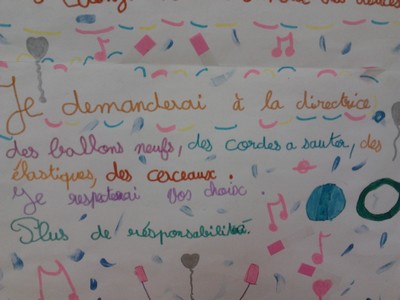 Je demanderai à la directrice,
des ballons neufs, des cordes a sauter, des
élastiques, des cerceaux.
Je respecterai vos choix.
Plus de résponsabilité.